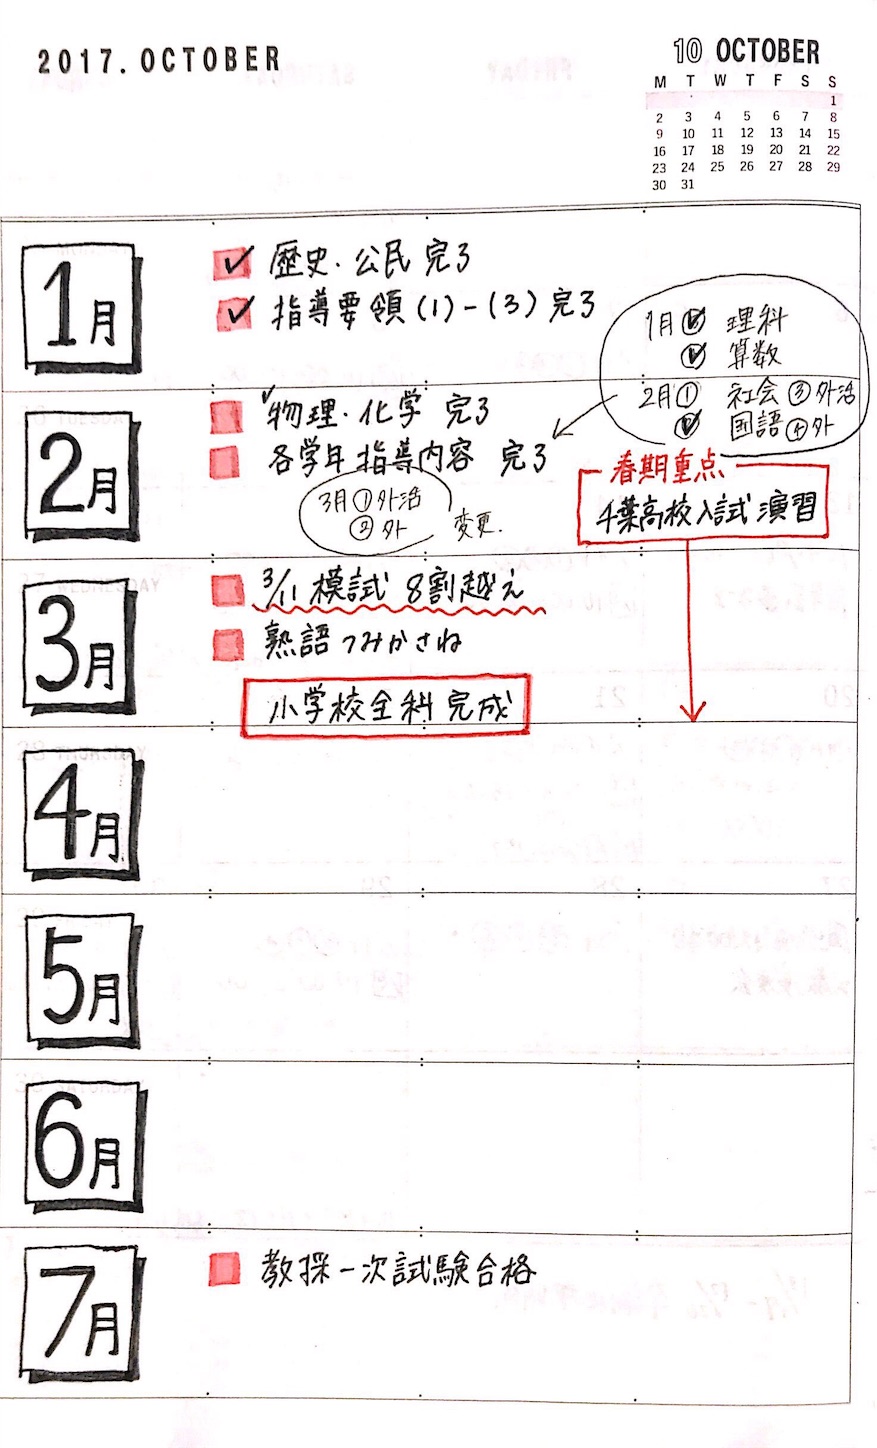 2017.OCTOBER
10 OCTOBER
M T W T F S S
1
2 3 4 5 6 7 8
9 10 11 12 13 14 15
16 17 18 19 20 21 22
23 24 25 26 27 28 29
30 31
1月
✓ 歴史・公民 完了
✓ 指導要領(1)-(3)完了
1月 ① 理科
② 算数
2月 ① 社会 ③外活
② 国語 ④外
2月
✓物理・化学 完了
各学年指導内容 完了
3月①外活
②外
変更.
春期重点
千葉高校入試演習
3月
3/11 模試 8割越え
熟語つみかさね
小学校全科完成
4月
5月
6月
7月
教採一次試験合格